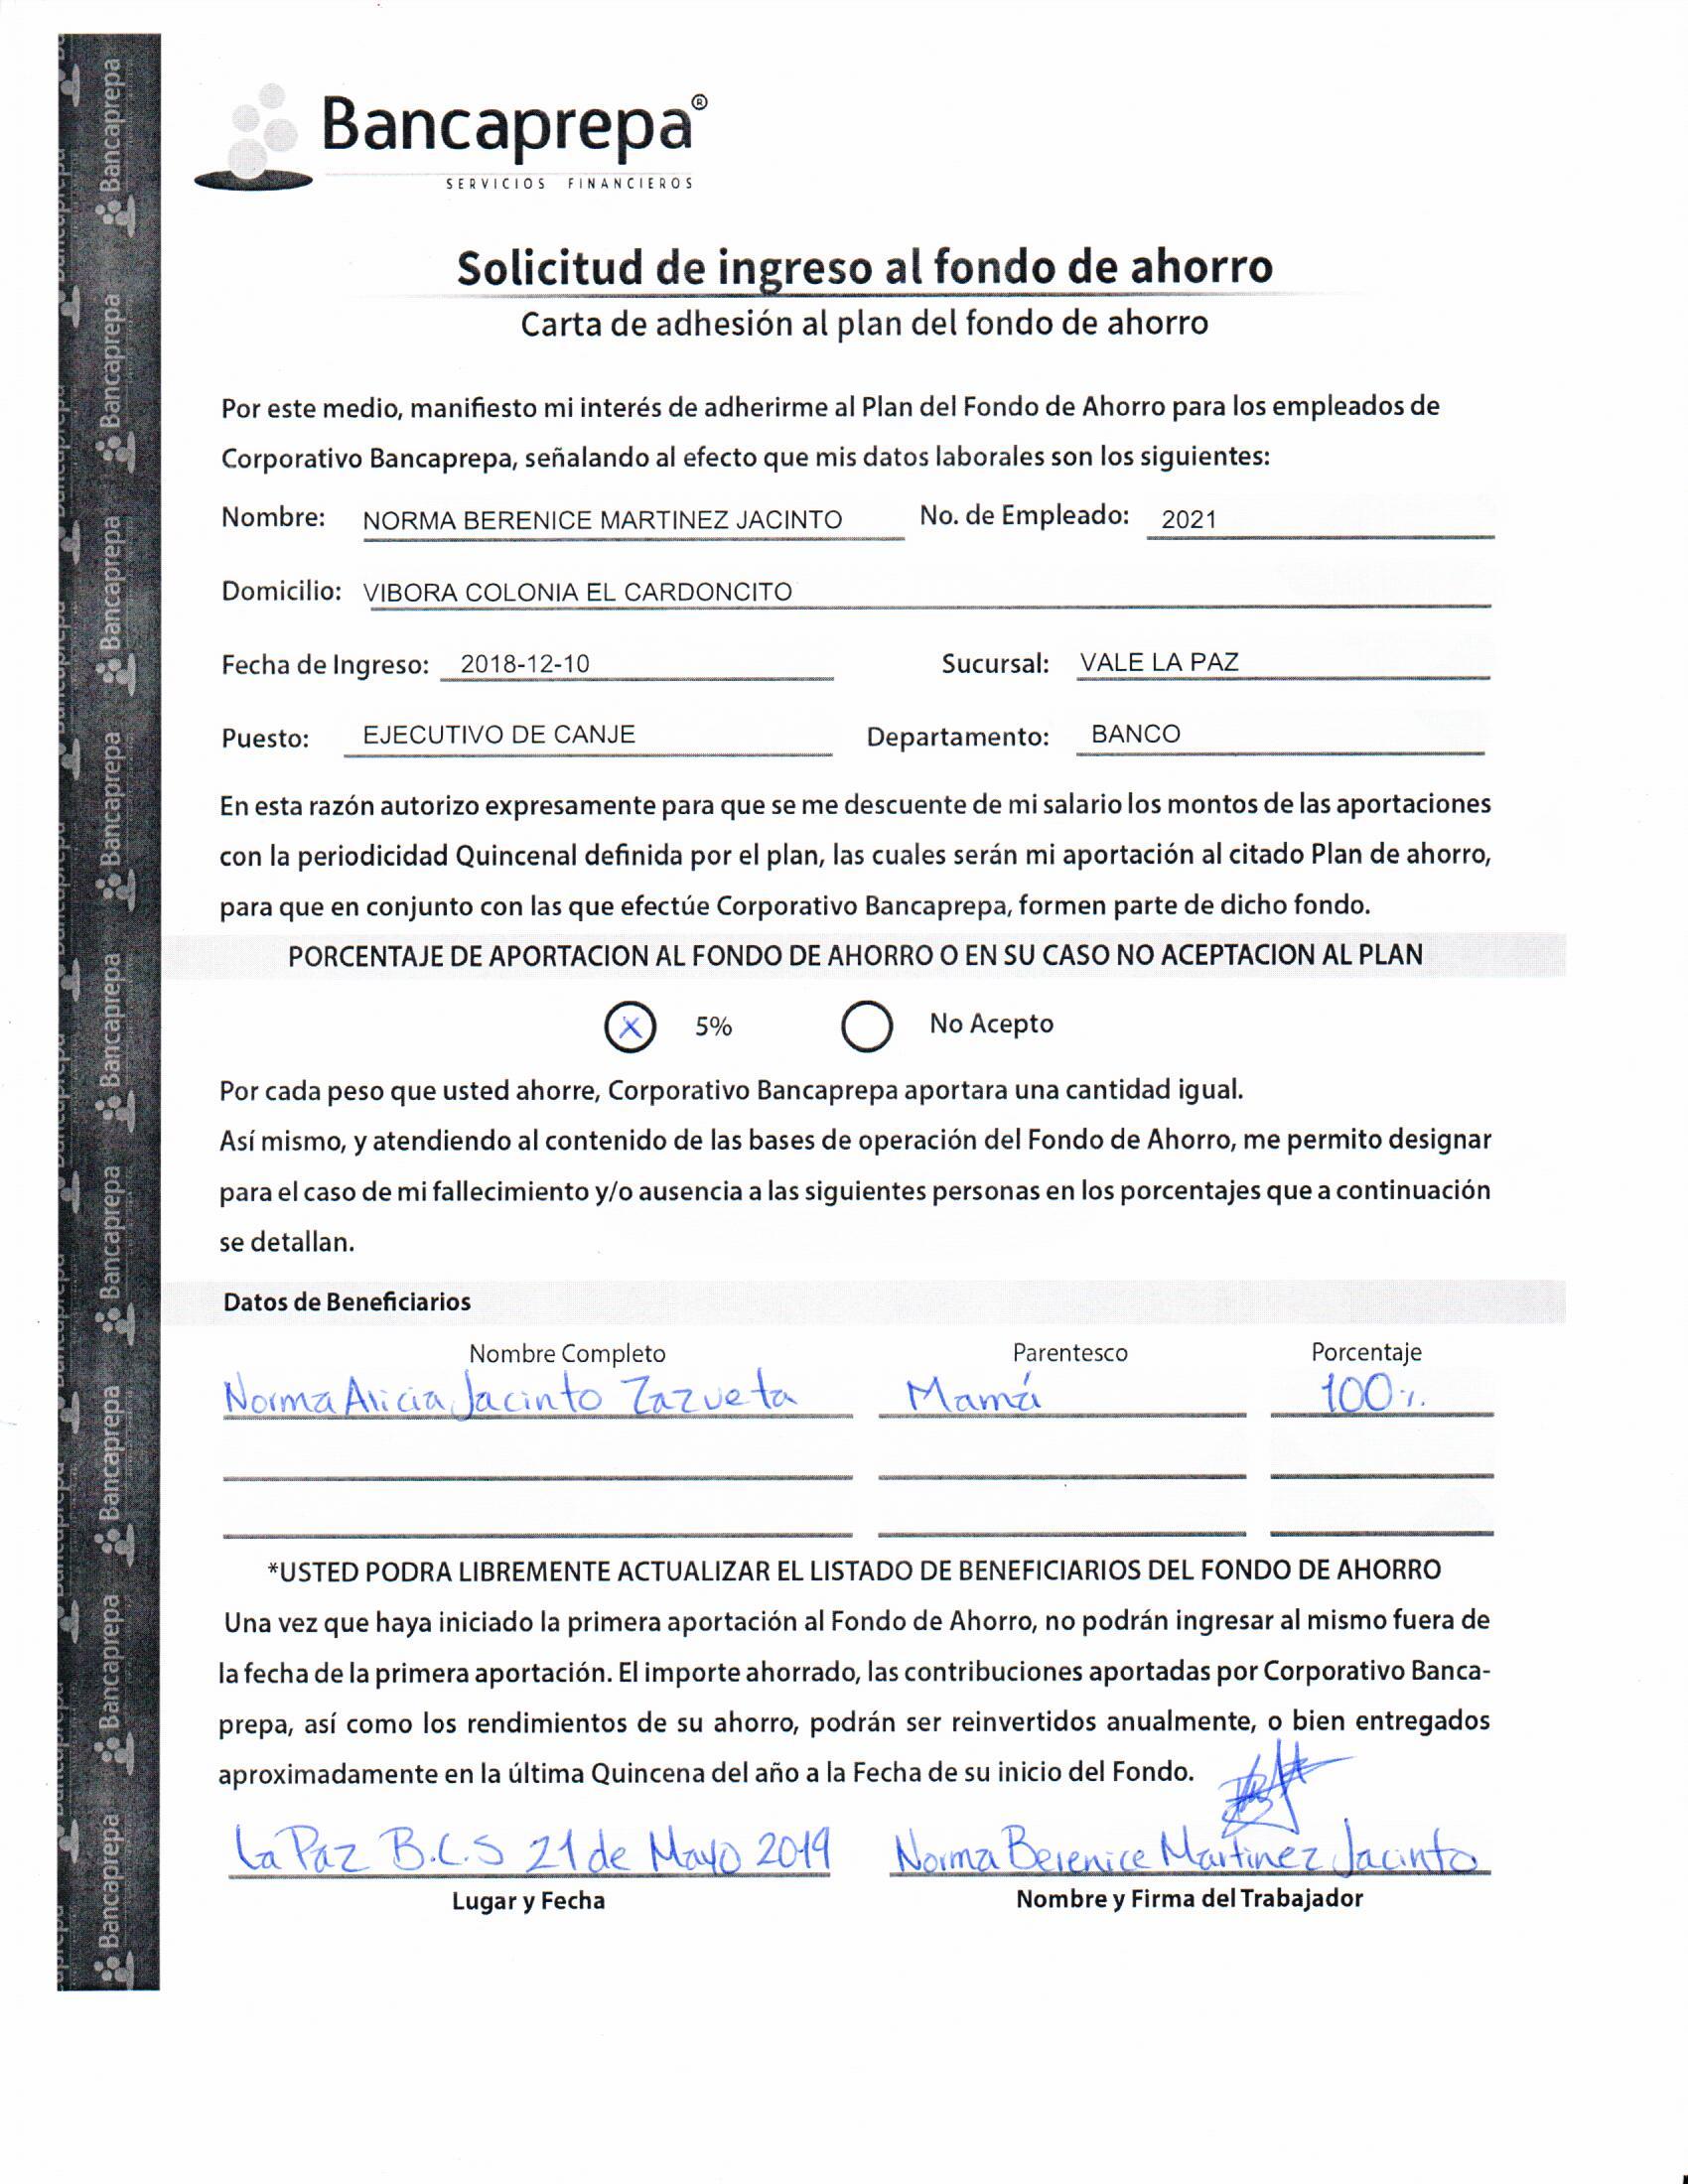 Bancaprepa®
SERVICIOS FINANCIEROS
Solicitud de ingreso al fondo de ahorro
Carta de adhesión al plan del fondo de ahorro
Por este medio, manifiesto mi interés de adherirme al Plan del Fondo de Ahorro para los empleados de
Corporativo Bancaprepa, señalando al efecto que mis datos laborales son los siguientes:
Nombre: NORMA BERENICE MARTINEZ JACINTO No. de Empleado: 2021
Domicilio: VIBORA COLONIA EL CARDONCITO
Fecha de Ingreso: 2018-12-10 Sucursal: VALE LA PAZ
Puesto: EJECUTIVO DE CANJE Departamento: BANCO
En esta razón autorizo expresamente para que se me descuente de mi salario los montos de las aportaciones
con la periodicidad Quincenal definida por el plan, las cuales serán mi aportación al citado Plan de ahorro,
para que en conjunto con las que efectúe Corporativo Bancaprepa, formen parte de dicho fondo.
PORCENTAJE DE APORTACION AL FONDO DE AHORRO O EN SU CASO NO ACEPTACION AL PLAN
X 5% No Acepto
Por cada peso que usted ahorre, Corporativo Bancaprepa aportara una cantidad igual.
Así mismo, y atendiendo al contenido de las bases de operación del Fondo de Ahorro, me permito designar
para el caso de mi fallecimiento y/o ausencia a las siguientes personas en los porcentajes que a continuación
se detallan.
Datos de Beneficiarios
Nombre Completo Parentesco Porcentaje
Norma Alicia Jacinto Zazueta Mamá 100%
*USTED PODRA LIBREMENTE ACTUALIZAR EL LISTADO DE BENEFICIARIOS DEL FONDO DE AHORRO
Una vez que haya iniciado la primera aportación al Fondo de Ahorro, no podrán ingresar al mismo fuera de
la fecha de la primera aportación. El importe ahorrado, las contribuciones aportadas por Corporativo Banca-
prepa, así como los rendimientos de su ahorro, podrán ser reinvertidos anualmente, o bien entregados
aproximadamente en la última Quincena del año a la Fecha de su inicio del Fondo.
La Paz B.C.S 21 de Mayo 2019 Norma Berenice Martinez Jacinto
Lugar y Fecha Nombre y Firma del Trabajador
Bancaprepa
Bancaprepa
Bancaprepa
Bancaprepa
Bancaprepa
Bancaprepa
Bancaprepa
Bancaprepa
Bancaprepa